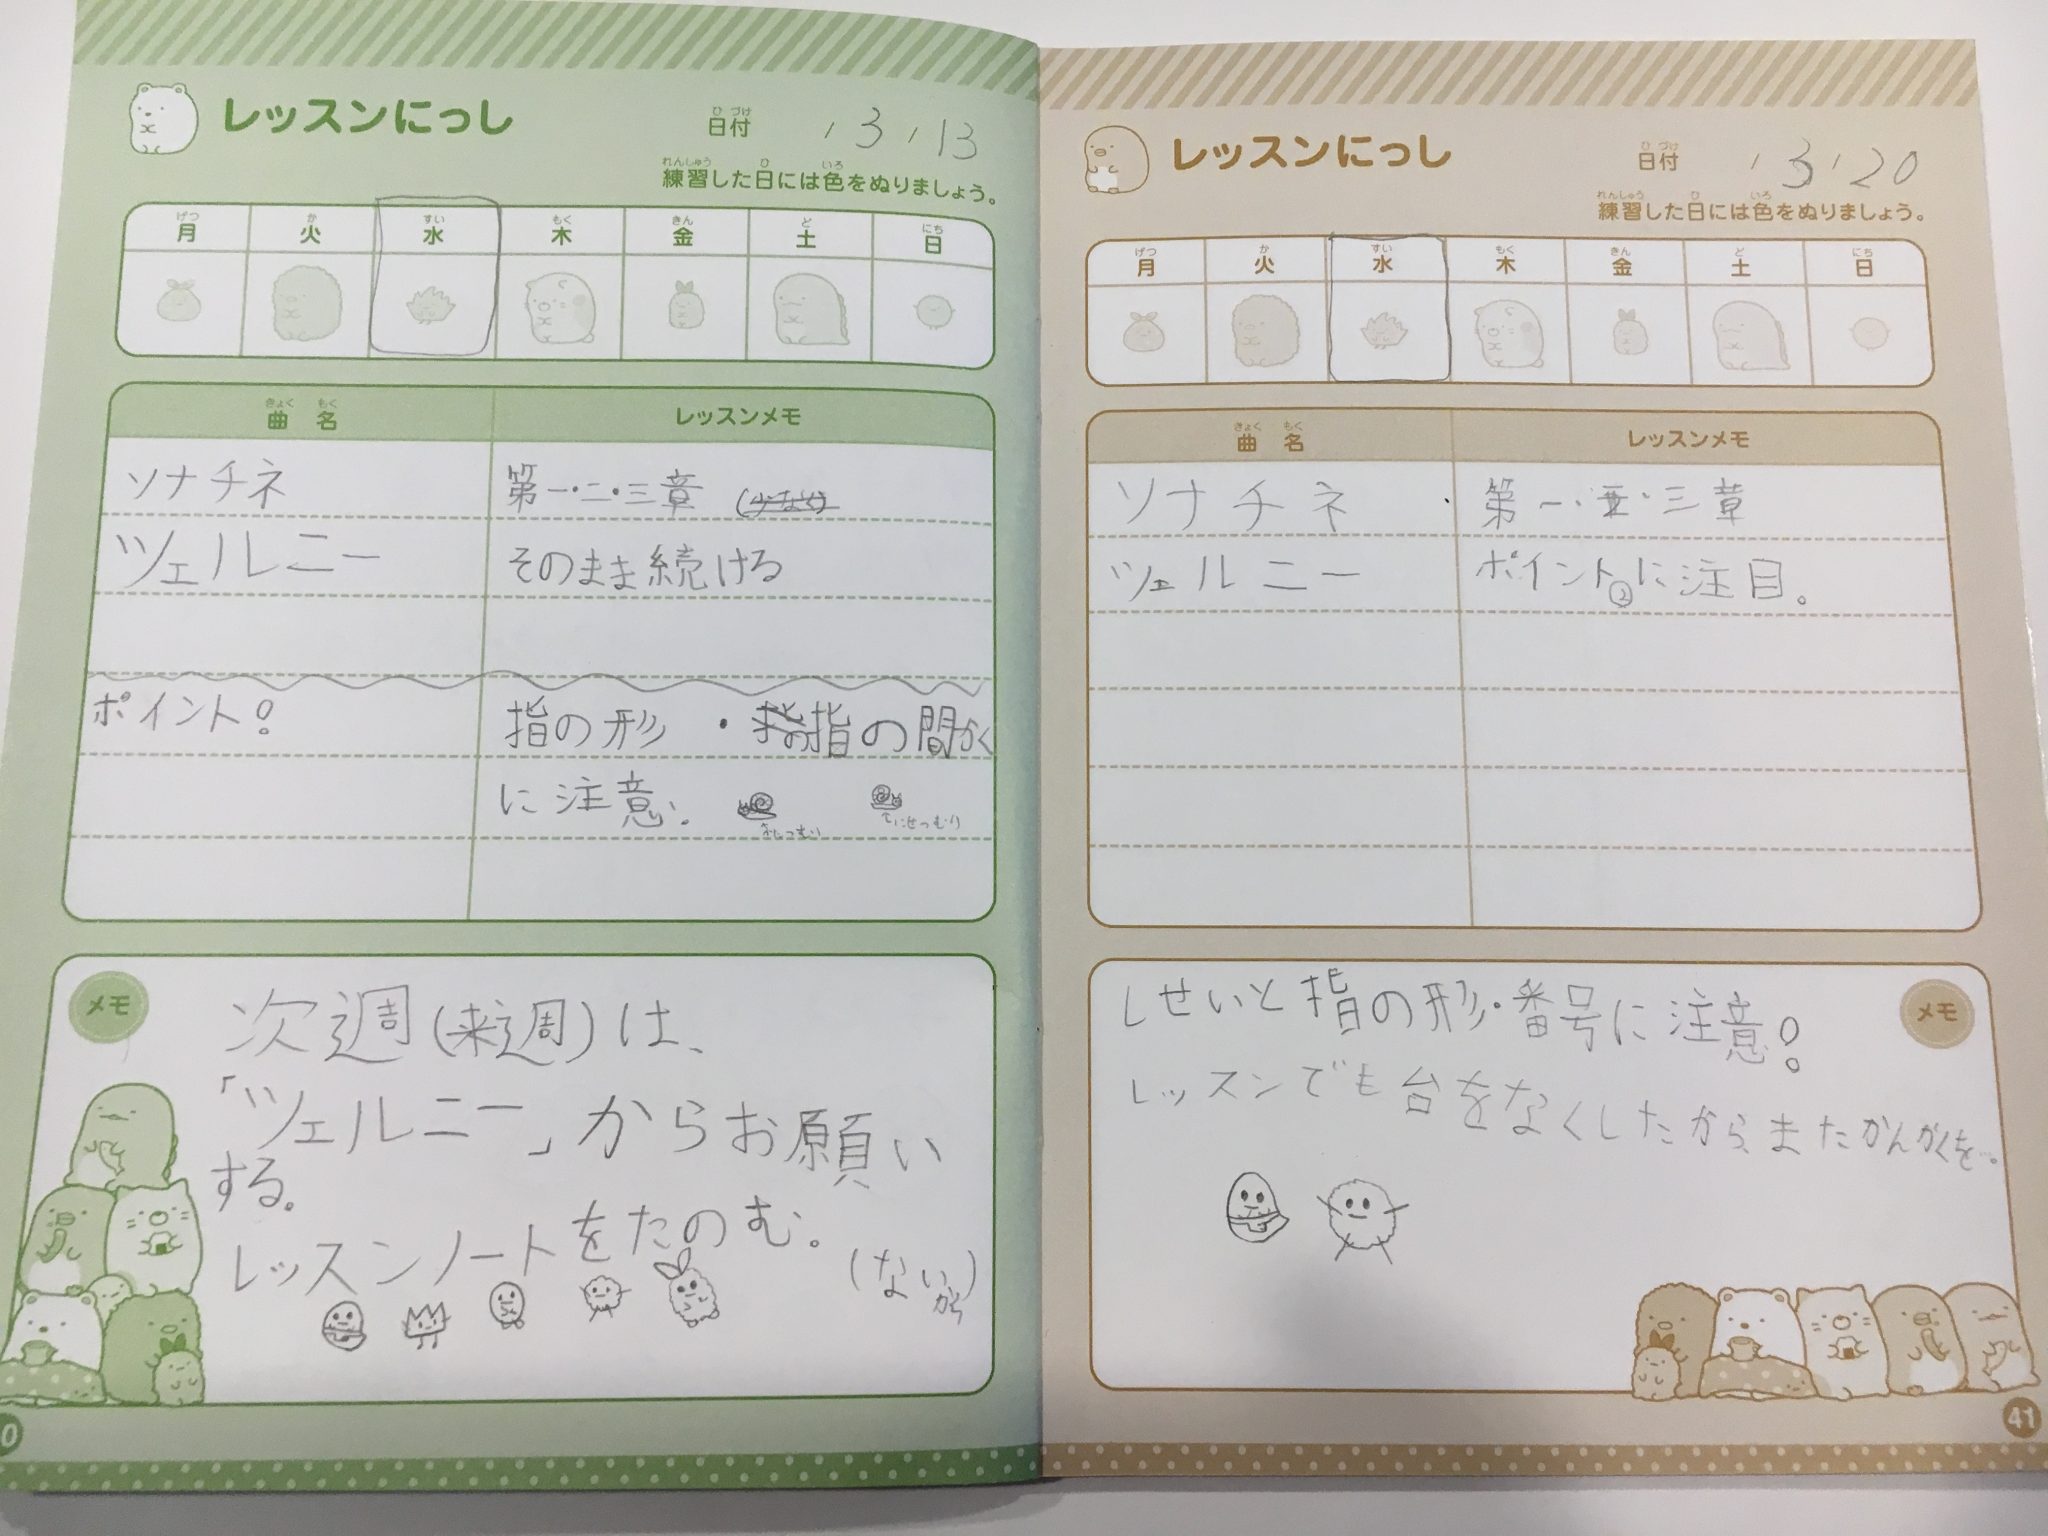 レッスンにっし
ひ づけ
日付 / 3 / 13
れんしゅう ひ いろ
練習した日には色をぬりましょう。
げつ か すい もく きん ど にち
月 火 水 木 金 土 日
きょく もく
曲 名 レッスンメモ
ソナチネ 第一・二・三章
ツェルニー そのまま続ける
ポイント! 指の形 ・指の間かく
に注意.
にせつむり
メモ
次週(来週)は、
「ツェルニー」からお願い
する。
レッスンノートをたのむ。
(ないから)
レッスンにっし
ひ づけ
日付 / 3 / 20
れんしゅう ひ いろ
練習した日には色をぬりましょう。
げつ か すい もく きん ど にち
月 火 水 木 金 土 日
きょく もく
曲 名 レッスンメモ
ソナチネ 第一・二・三章
ツェルニー ポイント②に注目。
メモ
しせいと指の形・番号に注意!
レッスンでも台をなくしたから、またかんかくを…。
41